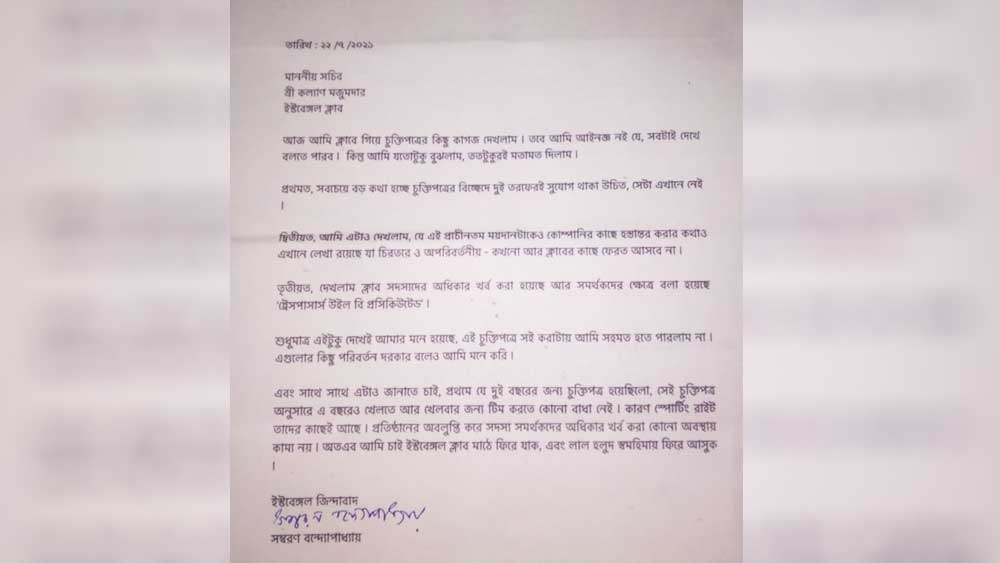 তারিখ : ২২ /৭ /২০২১
মাননীয় সচিব
শ্রী কল্যাণ মজুমদার
ইস্টবেঙ্গল ক্লাব
আজ আমি ক্লাবে গিয়ে চুক্তিপত্রের কিছু কাগজ দেখলাম । তবে আমি আইনজ্ঞ নই যে, সবটাই দেখে
বলতে পারব । কিন্তু আমি যতোটুকু বুঝলাম, ততটুকুরই মতামত দিলাম ।
প্রথমত, সবচেয়ে বড় কথা হচ্ছে চুক্তিপত্রের বিচ্ছেদে দুই তরফেরই সুযোগ থাকা উচিত, সেটা এখানে নেই
।
দ্বিতীয়ত, আমি এটাও দেখলাম, যে এই প্রাচীনতম ময়দানটাকেও কোম্পানির কাছে হস্তান্তর করার কথাও
এখানে লেখা রয়েছে যা চিরতরে ও অপরিবর্তনীয় - কখনো আর ক্লাবের কাছে ফেরত আসবে না ।
তৃতীয়ত, দেখলাম ক্লাব সদস্যদের অধিকার খর্ব করা হয়েছে আর সমর্থকদের ক্ষেত্রে বলা হয়েছে
'ট্রেসপাসার্স উইল বি প্রসিকিউটেড' ।
শুধুমাত্র এইটুকু দেখেই আমার মনে হয়েছে, এই চুক্তিপত্রে সই করাটায় আমি সহমত হতে পারলাম না ।
এগুলোর কিছু পরিবর্তন দরকার বলেও আমি মনে করি ।
এবং সাথে সাথে এটাও জানাতে চাই, প্রথমে যে দুই বছরের জন্য চুক্তিপত্র হয়েছিলো, সেই চুক্তিপত্র
অনুসারে এ বছরেও খেলতে আর খেলবার জন্য টিম করতে কোনো বাধা নেই । কারণ স্পোর্টিং রাইট
তাদের কাছেই আছে । প্রতিষ্ঠানের অবলুপ্তি করে সদস্য সমর্থকদের অধিকার খর্ব করা কোনো অবস্থায়
কাম্য নয় । অতএব আমি চাই ইস্টবেঙ্গল ক্লাব মাঠে ফিরে যাক, এবং লাল হলুদ স্বমহিমায় ফিরে আসুক
।
ইস্টবেঙ্গল জিন্দাবাদ
সম্বরণ বন্দ্যোপাধ্যায়
সম্বরণ বন্দ্যোপাধ্যায়